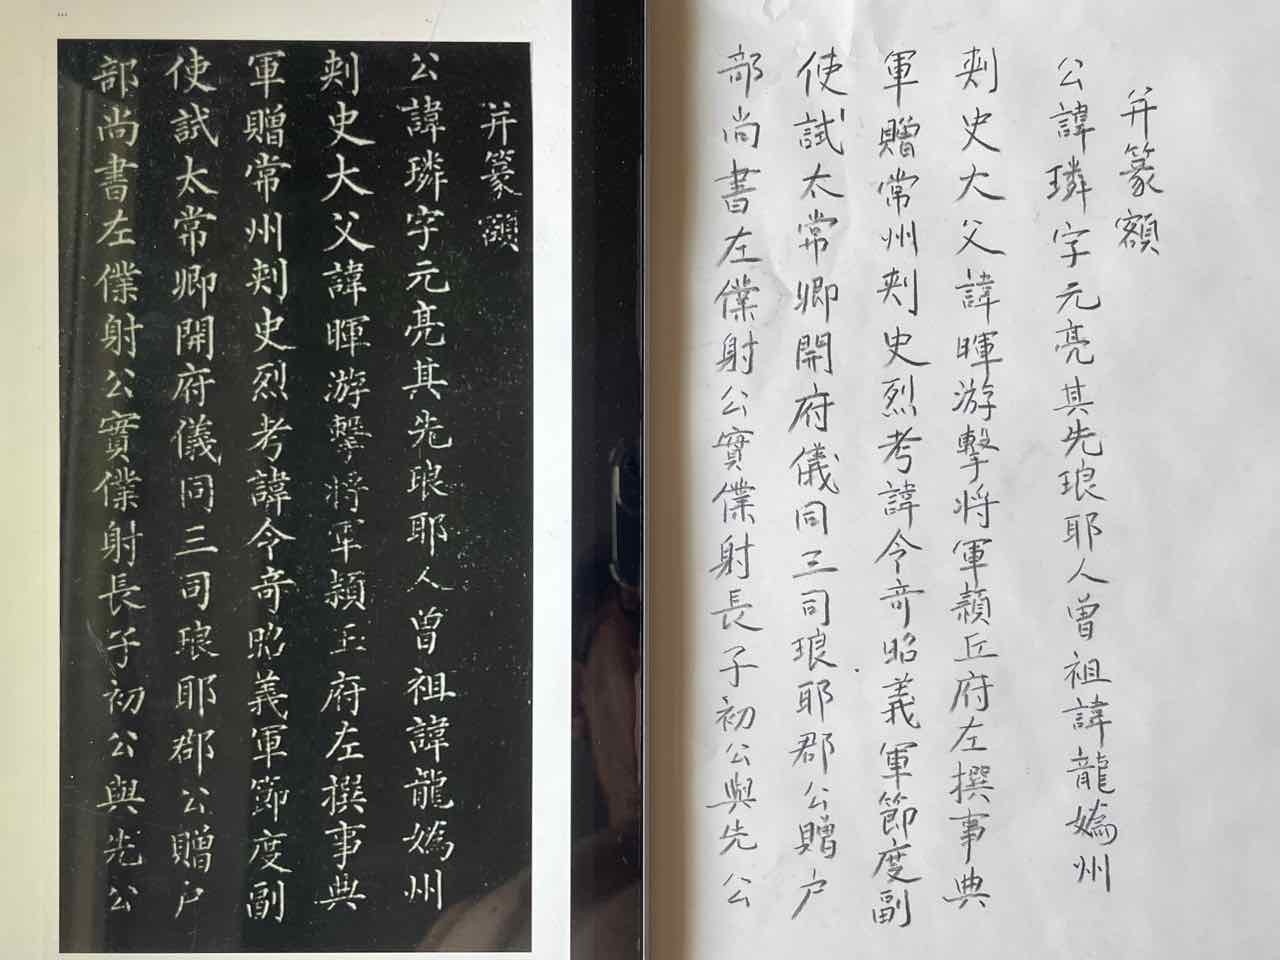 并篆額
公諱璘字元亮其先琅耶人曾祖諱龍媯州
刾史大父諱暉游擊将軍潁丘府左撰事典
軍贈常州刾史烈考諱令竒昭義軍節度副
使試太常卿開府儀同三司琅耶郡公贈户
部尚書左僕射公實僕射長子初公與先公
并篆額
公諱璘字元亮其先琅耶人曾祖諱龍媯州
刾史大父諱暉游擊将軍潁丘府左撰事典
軍贈常州刾史烈考諱令竒昭義軍節度副
使試太常卿開府儀同三司琅耶郡公贈户
部尚書左僕射公實僕射長子初公與先公